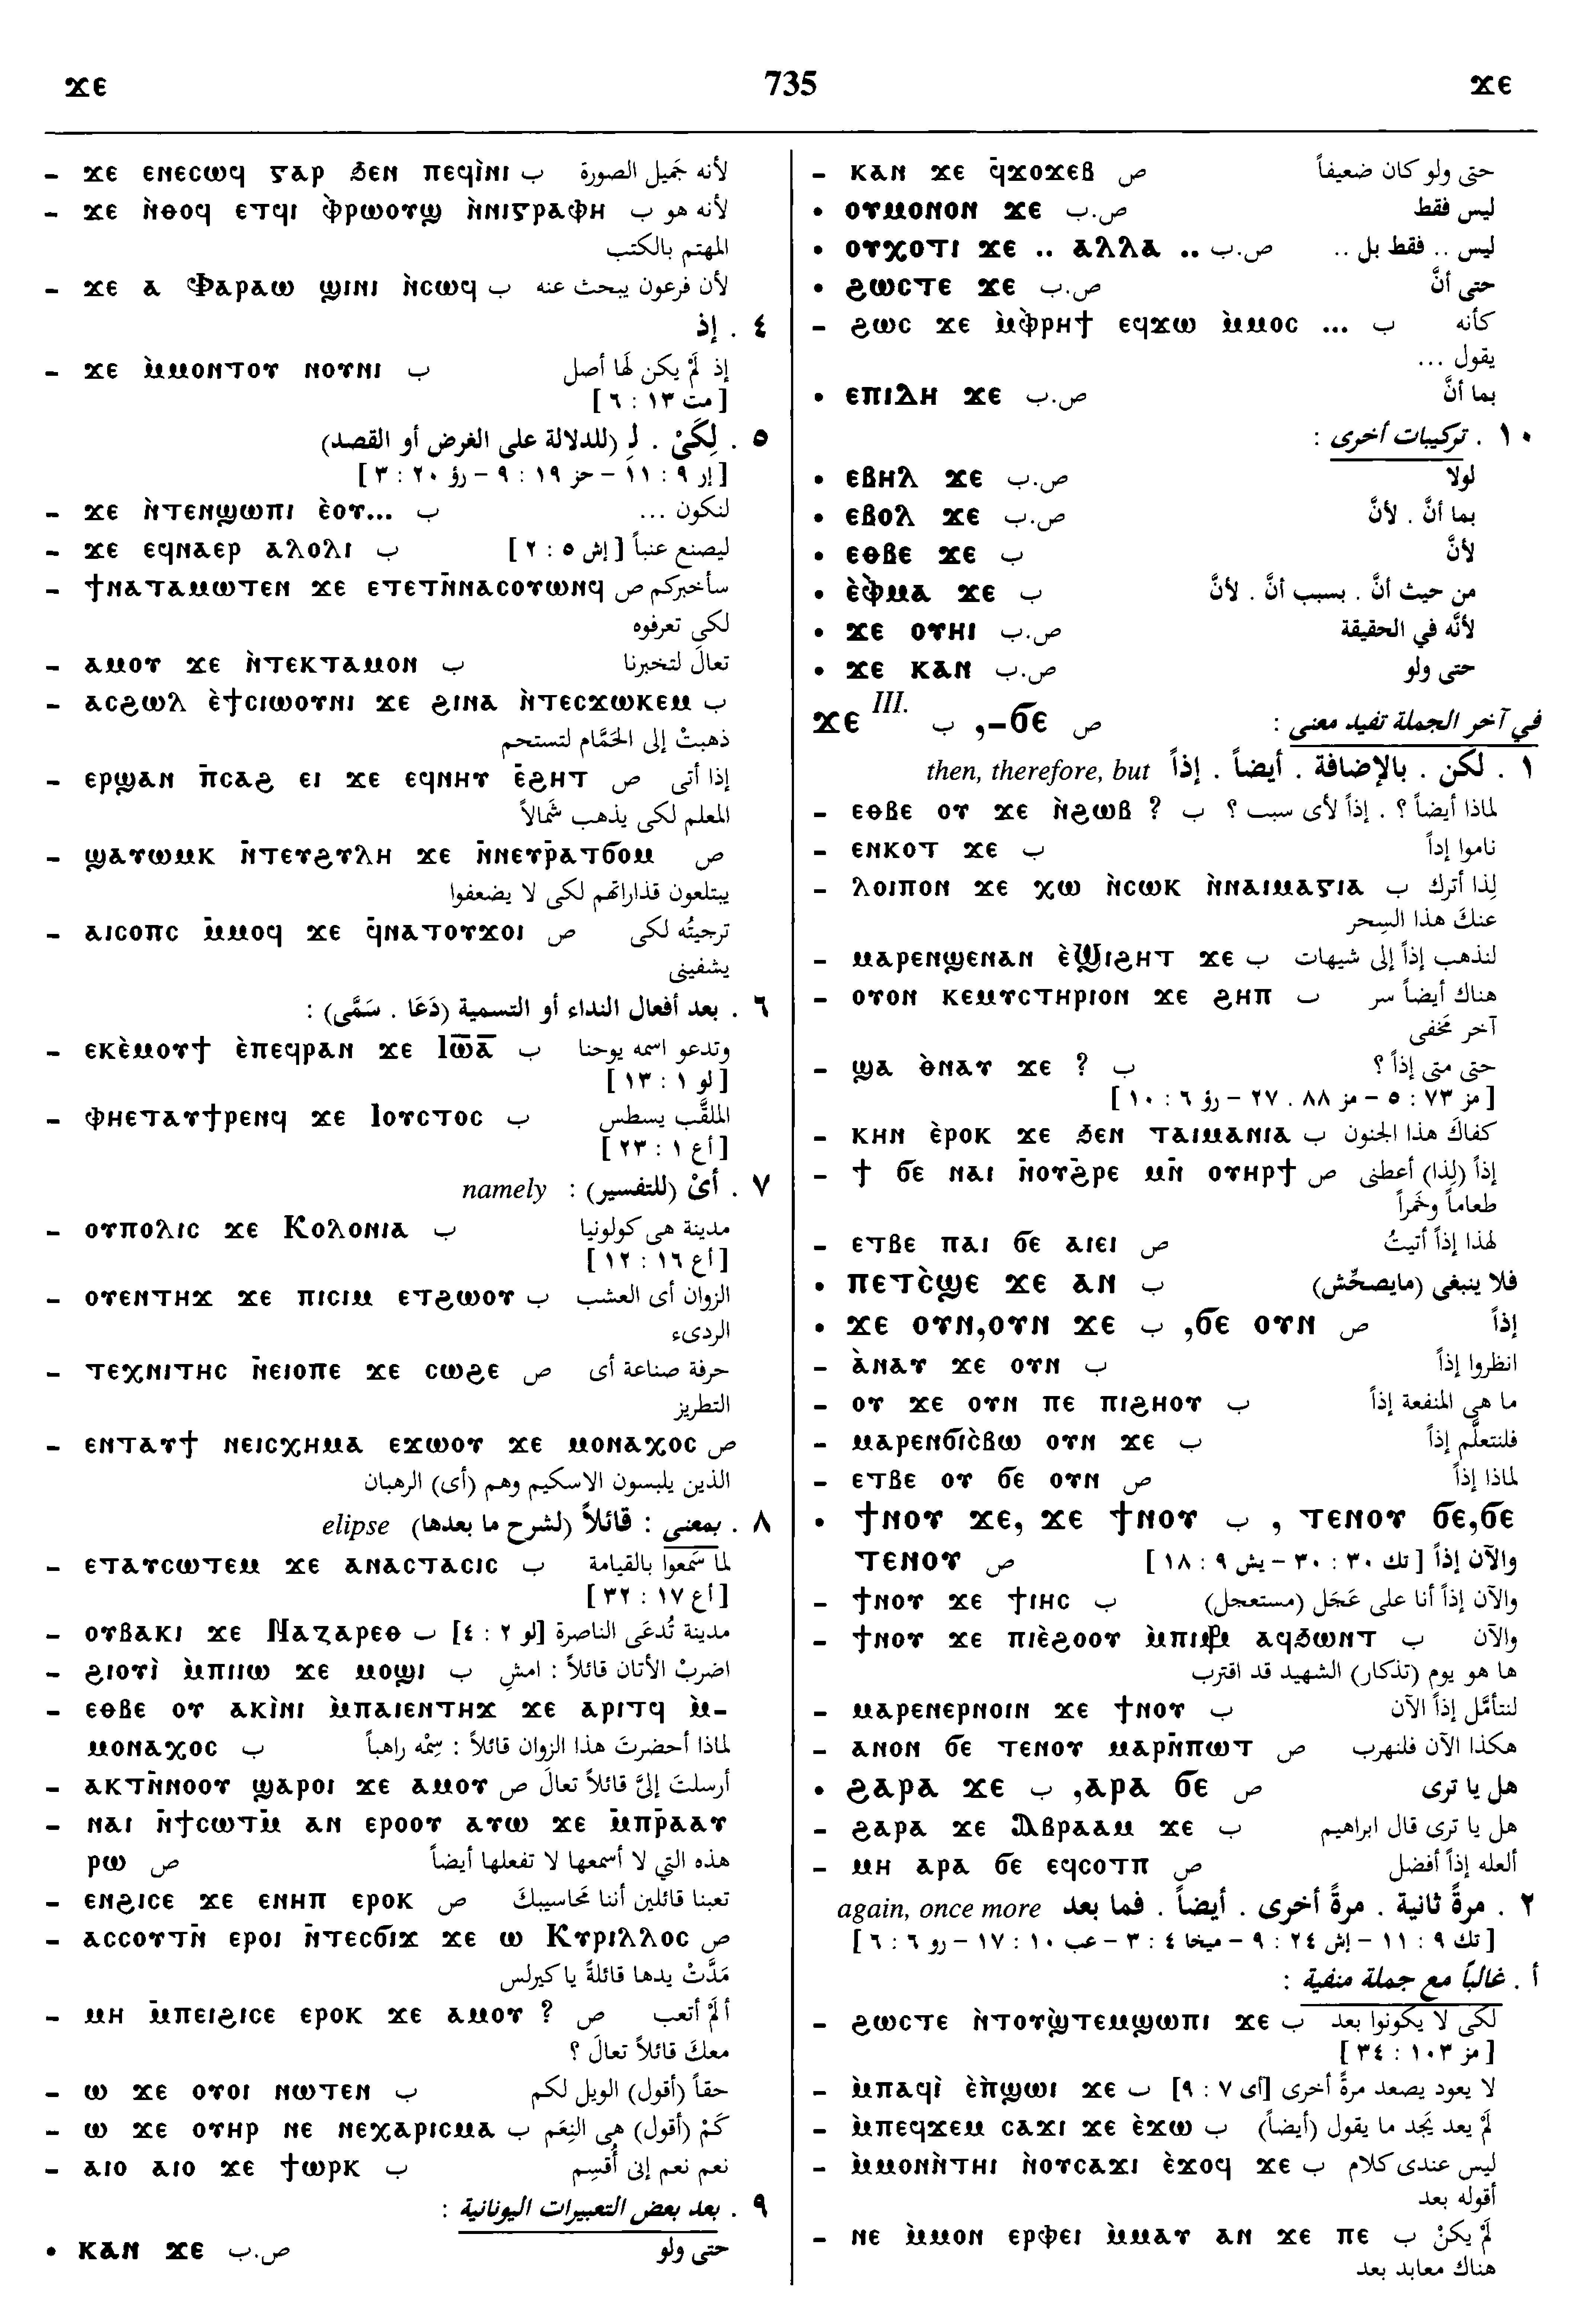 ϫⲉ 735 ϫⲉ
– ϫⲉ ⲉⲛⲉⲥⲱϥ ⲅⲁⲣ ϧⲉⲛ ⲡⲉϥⲓ̀ⲛⲓ ب لأنه جَميل الصورة
– ϫⲉ ⲛ̀ⲑⲟϥ ⲉⲧϥⲓ ⲫ̀ⲣⲱⲟⲩϣ ⲛ̀ⲛⲓⲅⲣⲁⲫⲏ ب لأنه هو
المهتم بالكتب
– ϫⲉ ⲁ Ⲫⲁⲣⲁⲱ ϣⲓⲛⲓ ⲛ̀ⲥⲱϥ ب لأن فرعون يبحث عنه
٤ . إذ
– ϫⲉ ⲙ̀ⲙⲟⲛⲧⲟⲩ ⲛⲟⲩⲛⲓ ب إذ لَمْ يكن لَها أصل
[ مت ١٣ : ٦ ]
٥ . لِكَىْ . لِـ (للدلالة على الغرض أو القصد)
[ إر ٩ : ١١ – حز ١٩ : ٩ – رؤ ٢٠ : ٣ ]
– ϫⲉ ⲛ̀ⲧⲉⲛϣⲱⲡⲓ ⲉ̀ⲟⲩ... ب لنكون ...
– ϫⲉ ⲉϥⲛⲁⲉⲣ ⲁⲗⲟⲗⲓ ب ليصنع عنباً [ إش ٥ : ٢ ]
– ϯⲛⲁⲧⲁⲙⲱⲧⲉⲛ ϫⲉ ⲉⲧⲉⲧⲛ̄ⲛⲁⲥⲟⲩⲱⲛϥ ص سأخبركم
لكى تعرفوه
– ⲁⲙⲟⲩ ϫⲉ ⲛ̀ⲧⲉⲕⲧⲁⲙⲟⲛ ب تعالَ لتخبرنا
– ⲁⲥϩⲱⲗ ⲉ̀ϯⲥⲓⲱⲟⲩⲛⲓ ϫⲉ ϩⲓⲛⲁ ⲛ̀ⲧⲉⲥϫⲱⲕⲉⲙ ب
ذهبتْ إلى الحَمَّام لتستحم
– ⲉⲣϣⲁⲛ ⲡ̄ⲥⲁϩ ⲉⲓ ϫⲉ ⲉϥⲛⲏⲩ ⲉ̄ϩⲏⲧ ص إذا أتى
المعلم لكى يذهب شَمالاً
– ϣⲁⲩⲱⲙⲕ ⲛ̄ⲧⲉⲩϩⲩⲗⲏ ϫⲉ ⲛ̄ⲛⲉⲩⲣ̄ⲁⲧϭⲟⲙ ص
يبتلعون قذاراتَهم لكى لا يضعفوا
– ⲁⲓⲥⲟⲡⲥ ⲙ̄ⲙⲟϥ ϫⲉ ϥ̄ⲛⲁⲧⲟⲩϫⲟⲓ ص ترجيتُه لكى
يشفينى
٦ . بعد أفعال النداء أو التسمية (دَعَا . سَمَّى) :
– ⲉⲕⲉ̀ⲙⲟⲩϯ ⲉ̀ⲡⲉϥⲣⲁⲛ ϫⲉ Ⲓⲱ̄ⲁ̄ ب وتدعو اسمه يوحنا
[ لو ١ : ١٣ ]
– ⲫⲏⲉⲧⲁⲩϯⲣⲉⲛϥ ϫⲉ Ⲓⲟⲩⲥⲧⲟⲥ ب الملقَّب يسطس
[ أع ١ : ٢٣ ]
٧ . أىْ (للتفسير) : namely
– ⲟⲩⲡⲟⲗⲓⲥ ϫⲉ Ⲕⲟⲗⲟⲛⲓⲁ ب مدينة هى كولونيا
[ أع ١٦ : ١٢ ]
– ⲟⲩⲉⲛⲧⲏϫ ϫⲉ ⲡⲓⲥⲓⲙ ⲉⲧϩⲱⲟⲩ ب الزوان أى العشب
الردىء
– ⲧⲉⲭⲛⲓⲧⲏⲥ ⲛ̄ⲉⲓⲟⲡⲉ ϫⲉ ⲥⲱϩⲉ ص حرفة صناعة أى
التطريز
– ⲉⲛⲧⲁⲩϯ ⲛⲉⲓⲥⲭⲏⲙⲁ ⲉϫⲱⲟⲩ ϫⲉ ⲙⲟⲛⲁⲭⲟⲥ ص
الذين يلبسون الاسكيم وهم (أى) الرهبان
٨ . بمعنى : قائلاً (لشرح ما بعدها) elipse
– ⲉⲧⲁⲩⲥⲱⲧⲉⲙ ϫⲉ ⲁⲛⲁⲥⲧⲁⲥⲓⲥ ب لما سَمعوا بالقيامة
[ أع ١٧ : ٣٢ ]
– ⲟⲩⲃⲁⲕⲓ ϫⲉ Ⲛⲁⲍⲁⲣⲉⲑ ب مدينة تُدعَى الناصرة [لو ٢ : ٤]
– ϩⲓⲟⲩⲓ̀ ⲙ̀ⲡⲓⲓⲱ ϫⲉ ⲙⲟϣⲓ ب اضربْ الأتان قائلاً : امشِ
– ⲉⲑⲃⲉ ⲟⲩ ⲁⲕⲓ̀ⲛⲓ ⲙ̀ⲡⲁⲓⲉⲛⲧⲏϫ ϫⲉ ⲁⲣⲓⲧϥ ⲙ̀–
ⲙⲟⲛⲁⲭⲟⲥ ب لماذا أحضرتَ هذا الزوان قائلاً : سِمْه راهباً
– ⲁⲕⲧⲛ̄ⲛⲟⲟⲩ ϣⲁⲣⲟⲓ ϫⲉ ⲁⲙⲟⲩ ص أرسلتَ إلىَّ قائلاً تعالَ
– ⲛⲁⲓ ⲛ̄ϯⲥⲱⲧⲙ̄ ⲁⲛ ⲉⲣⲟⲟⲩ ⲁⲩⲱ ϫⲉ ⲙ̄ⲡⲣ̄ⲁⲁⲩ
ⲣⲱ ص هذه التي لا أسمعها لا تفعلها أيضاً
– ⲉⲛϩⲓⲥⲉ ϫⲉ ⲉⲛⲏⲡ ⲉⲣⲟⲕ ص تعبنا قائلين أننا مَحاسيبكَ
– ⲁⲥⲥⲟⲩⲧⲛ̄ ⲉⲣⲟⲓ ⲛ̄ⲧⲉⲥϭⲓϫ ϫⲉ ⲱ Ⲕⲩⲣⲓⲗⲗⲟⲥ ص
مَدَّتْ يدها قائلةً يا كيرلس
– ⲙⲏ ⲙ̄ⲡⲉⲓϩⲓⲥⲉ ⲉⲣⲟⲕ ϫⲉ ⲁⲙⲟⲩ ? ص ألَمْ أتعب
معكَ قائلاً تعالَ ؟
– ⲱ ϫⲉ ⲟⲩⲟⲓ ⲛⲱⲧⲉⲛ ب حقاً (أقول) الويل لكم
– ⲱ ϫⲉ ⲟⲩⲏⲣ ⲛⲉ ⲛⲉⲭⲁⲣⲓⲥⲙⲁ ب كَمْ (أقول) هى النِعَم
– ⲁⲓⲟ ⲁⲓⲟ ϫⲉ ϯⲱⲣⲕ ب نعم نعم إنى أُقسِم
٩ . بعد بعض التعبيرات اليونانية :
• ⲕⲁⲛ ϫⲉ ص.ب حتى ولو
– ⲕⲁⲛ ϫⲉ ϥ̄ϫⲟϫⲉⲃ ص حتى ولو كان ضعيفاً
• ⲟⲩⲙⲟⲛⲟⲛ ϫⲉ ص.ب ليس فقط
• ⲟⲩⲭⲟⲧⲓ ϫⲉ .. ⲁⲗⲗⲁ .. ص.ب ليس .. فقط بل ..
• ϩⲱⲥⲧⲉ ϫⲉ ص.ب حتى أنَّ
– ϩⲱⲥ ϫⲉ ⲙ̀ⲫ̀ⲣⲏϯ ⲉϥϫⲱ ⲙ̀ⲙⲟⲥ ... ب كأنه
يقول ...
• ⲉⲡⲓⲇⲏ ϫⲉ ص.ب بما أنَّ
١٠ . تركيبات أخرى :
• ⲉⲃⲏⲗ ϫⲉ ص.ب لولا
• ⲉⲃⲟⲗ ϫⲉ ص.ب بما أنَّ . لأنَّ
• ⲉⲑⲃⲉ ϫⲉ ب لأنَّ
• ⲉ̀ⲫ̀ⲙⲁ ϫⲉ ب من حيث أنَّ . بسبب أنَّ . لأنَّ
• ϫⲉ ⲟⲩⲏⲓ ص.ب لأنَّه في الحقيقة
• ϫⲉ ⲕⲁⲛ ص.ب حتى ولو
ϫⲉ III. ب ,–ϭⲉ ص في آخر الجملة تفيد معنى :
١ . لكن . بالإضافة . أيضاً . إذاً then, therefore, but
– ⲉⲑⲃⲉ ⲟⲩ ϫⲉ ⲛ̀ϩⲱⲃ ? ب لماذا أيضاً ؟ . إذاً لأى سبب ؟
– ⲉⲛⲕⲟⲧ ϫⲉ ب ناموا إذاً
– ⲗⲟⲓⲡⲟⲛ ϫⲉ ⲭⲱ ⲛ̀ⲥⲱⲕ ⲛ̀ⲛⲁⲓⲙⲁⲅⲓⲁ ب لِذا أترك
عنكَ هذا السِحر
– ⲙⲁⲣⲉⲛϣⲉⲛⲁⲛ ⲉ̀Ϣⲓϩⲏⲧ ϫⲉ ب لنذهب إذاً إلى شيهات
– ⲟⲩⲟⲛ ⲕⲉⲙⲩⲥⲧⲏⲣⲓⲟⲛ ϫⲉ ϩⲏⲡ ب هناك أيضاً سر
آخر مَخفى
– ϣⲁ ⲑ̀ⲛⲁⲩ ϫⲉ ? ب حتى متى إذاً ؟
[ مز ٧٣ : ٥ – مز ٨٨ . ٢٧ – رؤ ٦ : ١٠ ]
– ⲕⲏⲛ ⲉ̀ⲣⲟⲕ ϫⲉ ϧⲉⲛ ⲧⲁⲓⲙⲁⲛⲓⲁ ب كفاكَ هذا الجنون
– ϯ ϭⲉ ⲛⲁⲓ ⲛ̄ⲟⲩϩ̄ⲣⲉ ⲙⲛ̄ ⲟⲩⲏⲣϯ ص إذاً (لِذا) أعطنى
طعاماً وخَمراً
– ⲉⲧⲃⲉ ⲡⲁⲓ ϭⲉ ⲁⲓⲉⲓ ص لهذا إذاً أتيتُ
• ⲡⲉⲧⲥ̀ϣⲉ ϫⲉ ⲁⲛ ب فلا ينبغى (مايصحِّش)
• ϫⲉ ⲟⲩⲛ,ⲟⲩⲛ ϫⲉ ب ,ϭⲉ ⲟⲩⲛ ص إذاً
– ⲁ̀ⲛⲁⲩ ϫⲉ ⲟⲩⲛ ب انظروا إذاً
– ⲟⲩ ϫⲉ ⲟⲩⲛ ⲡⲉ ⲡⲓϩⲏⲟⲩ ب ما هى المنفعة إذاً
– ⲙⲁⲣⲉⲛϭⲓⲥ̀ⲃⲱ ⲟⲩⲛ ϫⲉ ب فلنتعلَّم إذاً
– ⲉⲧⲃⲉ ⲟⲩ ϭⲉ ⲟⲩⲛ ص لماذا إذاً
• ϯⲛⲟⲩ ϫⲉ, ϫⲉ ϯⲛⲟⲩ ب , ⲧⲉⲛⲟⲩ ϭⲉ,ϭⲉ
ⲧⲉⲛⲟⲩ ص والآن إذاً [ تك ٣٠ : ٣٠ – يش ٩ : ١٨ ]
– ϯⲛⲟⲩ ϫⲉ ϯⲓⲏⲥ ب والآن إذاً أنا على عَجَل (مستعجل)
– ϯⲛⲟⲩ ϫⲉ ⲡⲓⲉ̀ϩⲟⲟⲩ ⲙ̀ⲡⲓⲙ︦ⲣ︦ ⲁϥϧⲱⲛⲧ ب والآن
ها هو يوم (تذكار) الشهيد قد اقترب
– ⲙⲁⲣⲉⲛⲉⲣⲛⲟⲓⲛ ϫⲉ ϯⲛⲟⲩ ب لنتأمَّل إذاً الآن
– ⲁⲛⲟⲛ ϭⲉ ⲧⲉⲛⲟⲩ ⲙⲁⲣⲛ̄ⲡⲱⲧ ص هكذا الآن فلنهرب
• ϩⲁⲣⲁ ϫⲉ ب ,ⲁⲣⲁ ϭⲉ ص هل يا ترى
– ϩⲁⲣⲁ ϫⲉ Ⲁⲃⲣⲁⲁⲙ ϫⲉ ب هل يا ترى قال ابراهيم
– ⲙⲏ ⲁⲣⲁ ϭⲉ ⲉϥⲥⲟⲧⲡ ص ألعله إذاً أفضل
٢ . مرةً ثانية . مرةً أخرى . أيضاً . فما بعد again, once more
[ تك ٩ : ١١ – إش ٢٤ : ٩ – ميخا ٤ : ٣ – عب ١٠ : ١٧ – رو ٦ : ٦ ]
أ . غالباً مع جملة منفية :
– ϩⲱⲥⲧⲉ ⲛ̀ⲧⲟⲩϣ̀ⲧⲉⲙϣⲱⲡⲓ ϫⲉ ب لكى لا يكونوا بعد
[ مز ١٠٣ : ٣٤ ]
– ⲙ̀ⲡⲁϥⲓ̀ ⲉ̀ⲡ̀ϣⲱⲓ ϫⲉ ب لا يعود يصعد مرةً أخرى [أى ٧ : ٩]
– ⲙ̀ⲡⲉϥϫⲉⲙ ⲥⲁϫⲓ ϫⲉ ⲉ̀ϫⲱ ب لَمْ يعد يَجد ما يقول (أيضاً)
– ⲙ̀ⲙⲟⲛⲛ̀ⲧⲏⲓ ⲛ̀ⲟⲩⲥⲁϫⲓ ⲉ̀ϫⲟϥ ϫⲉ ب ليس عندى كلام
أقوله بعد
– ⲛⲉ ⲙ̀ⲙⲟⲛ ⲉⲣⲫⲉⲓ ⲙ̀ⲙⲁⲩ ⲁⲛ ϫⲉ ⲡⲉ ب لَمْ يكنْ
هناك معابد بعد